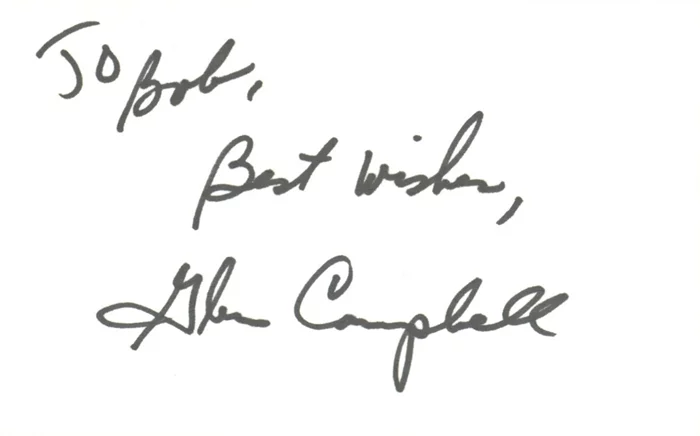 To Bob,
Best Wishes,
Glen Campbell